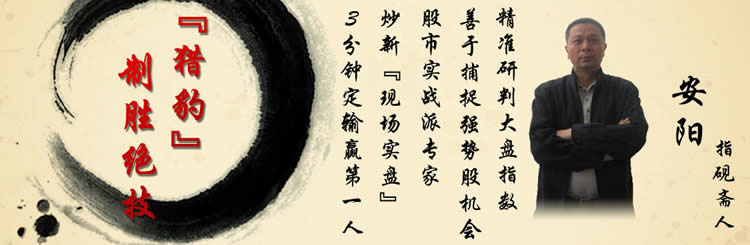 『猎豹』
制胜绝技
精准研判大盘指数
善于捕捉强势股机会
股市实战派专家
炒新『现场实盘』
3分钟定输赢第一人
安阳
指砚斋人